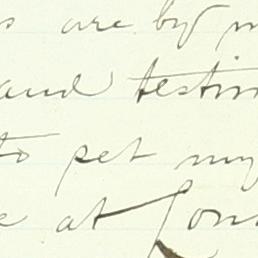 s are by m
and testim
to pet my
e at Cons